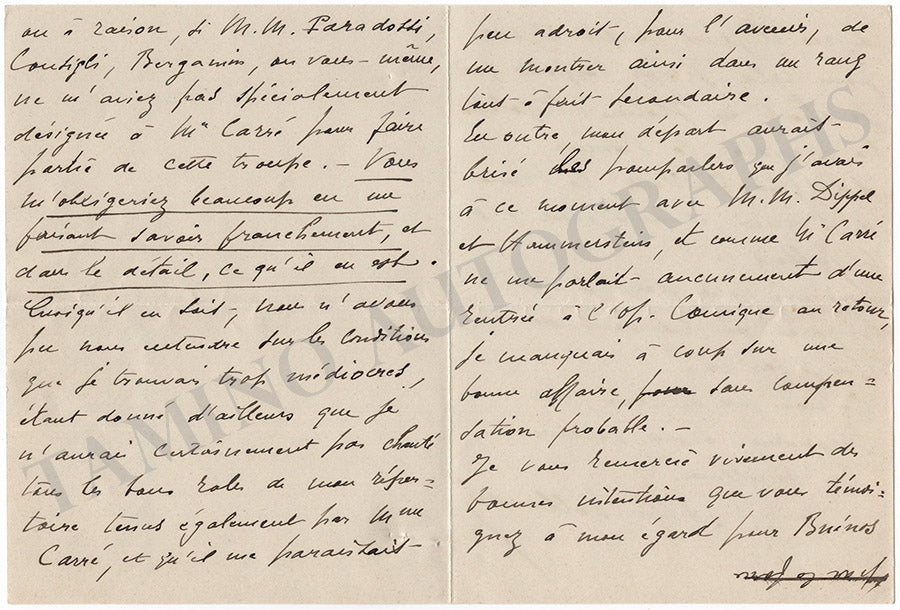 ou à raison, si M.M. Paradossi,
Consigli, Bergamin, ou vous-même,
ne m'aviez pas spécialement
désignée à Mr Carré pour faire
partie de cette troupe. — Vous
m'obligeriez beaucoup en me
faisant savoir franchement, et
dans le détail, ce qu'il en est.
Quoiqu'il en soit, nous n'avons
pu nous entendre sur les conditions
que je trouvais trop médiocres,
étant donné d'ailleurs que je
n'aurai certainement pas chanté
tous les bons roles de mon réper=
toire tenus également par Mme
Carré, et qu'il me paraissait
peu adroit, pour l'avenir, de
me montrer ainsi dans un rang
tout-à-fait secondaire.
En outre, mon départ aurait
brisé les pourparlers que j'avais
à ce moment avec M.M. Dippel
et Hammerstein, et comme Mr Carré
ne me parlait aucunement d'une
rentrée à l'Op. Comique au retour,
je manquais à coup sur une
bonne affaire, pour sans compen=
sation probable. —
Je vous remercie vivement des
bonnes intentions que vous témoi=
gnez à mon égard pour Buénos
TAMINO AUTOGRAPHS